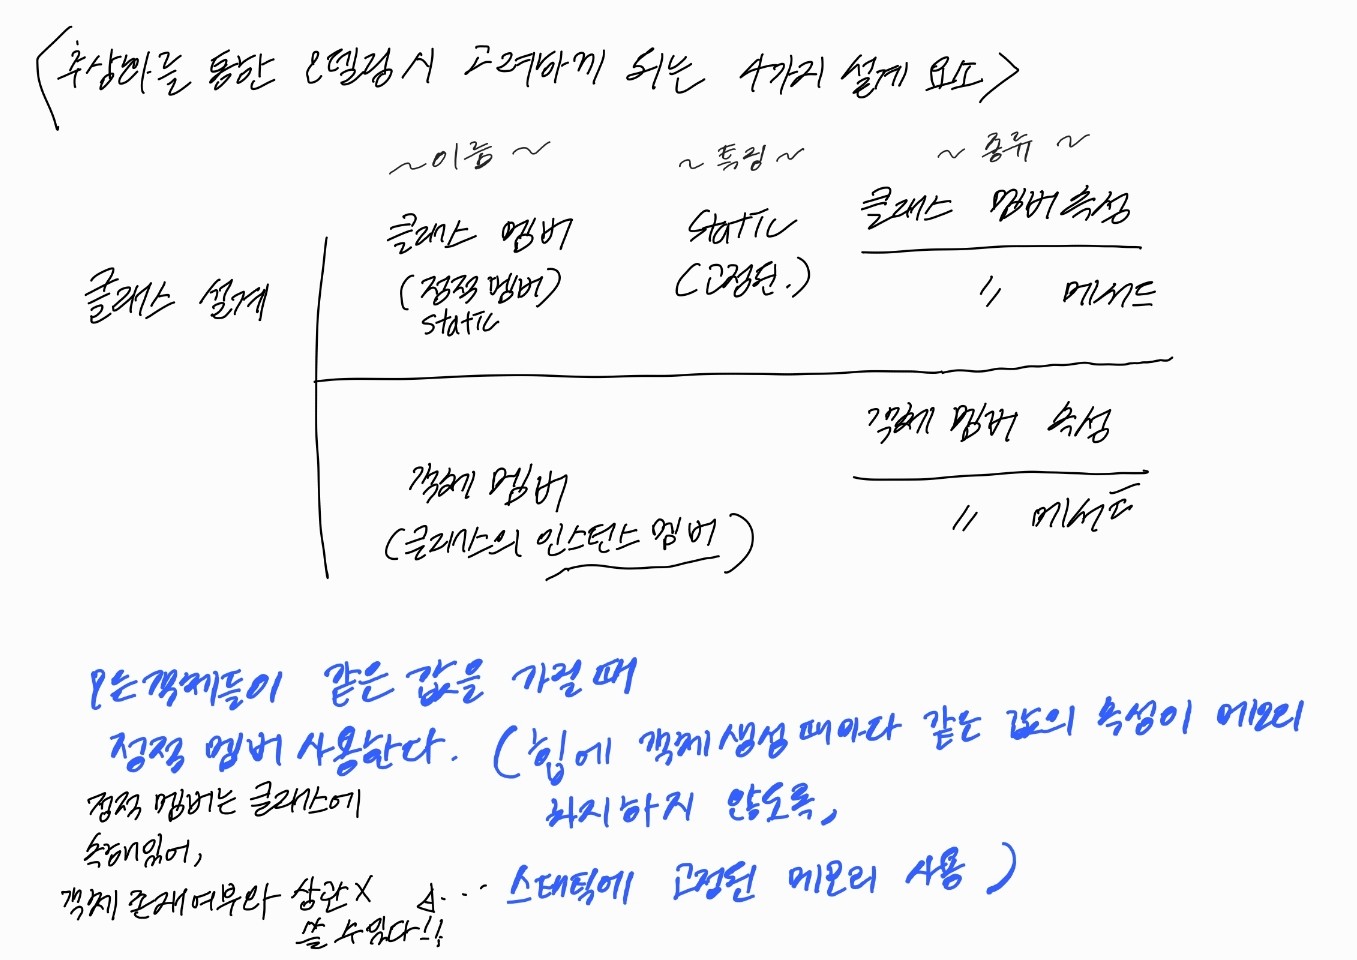 <추상화를 통한 모델링시 고려하게 되는 4가지 설계 요소>
~이름~ ~특징~ ~종류~
클래스 멤버 static 클래스 멤버속성
클래스 설계 (정적멤버) (고정된.) 〃 메서드
static
객체 멤버 속성
객체 멤버
(클래스의 인스턴스 멤버) 〃 메서드
모든객체들이 같은 값을 가질 때
정적 멤버 사용한다. (힙에 객체생성 때마다 같은 값의 속성이 메모리
차지하지 않도록,
정적 멤버는 클래스에
속해있어,
스태틱에 고정된 메모리 사용)
객체 존재여부와 상관X
쓸 수있다!!